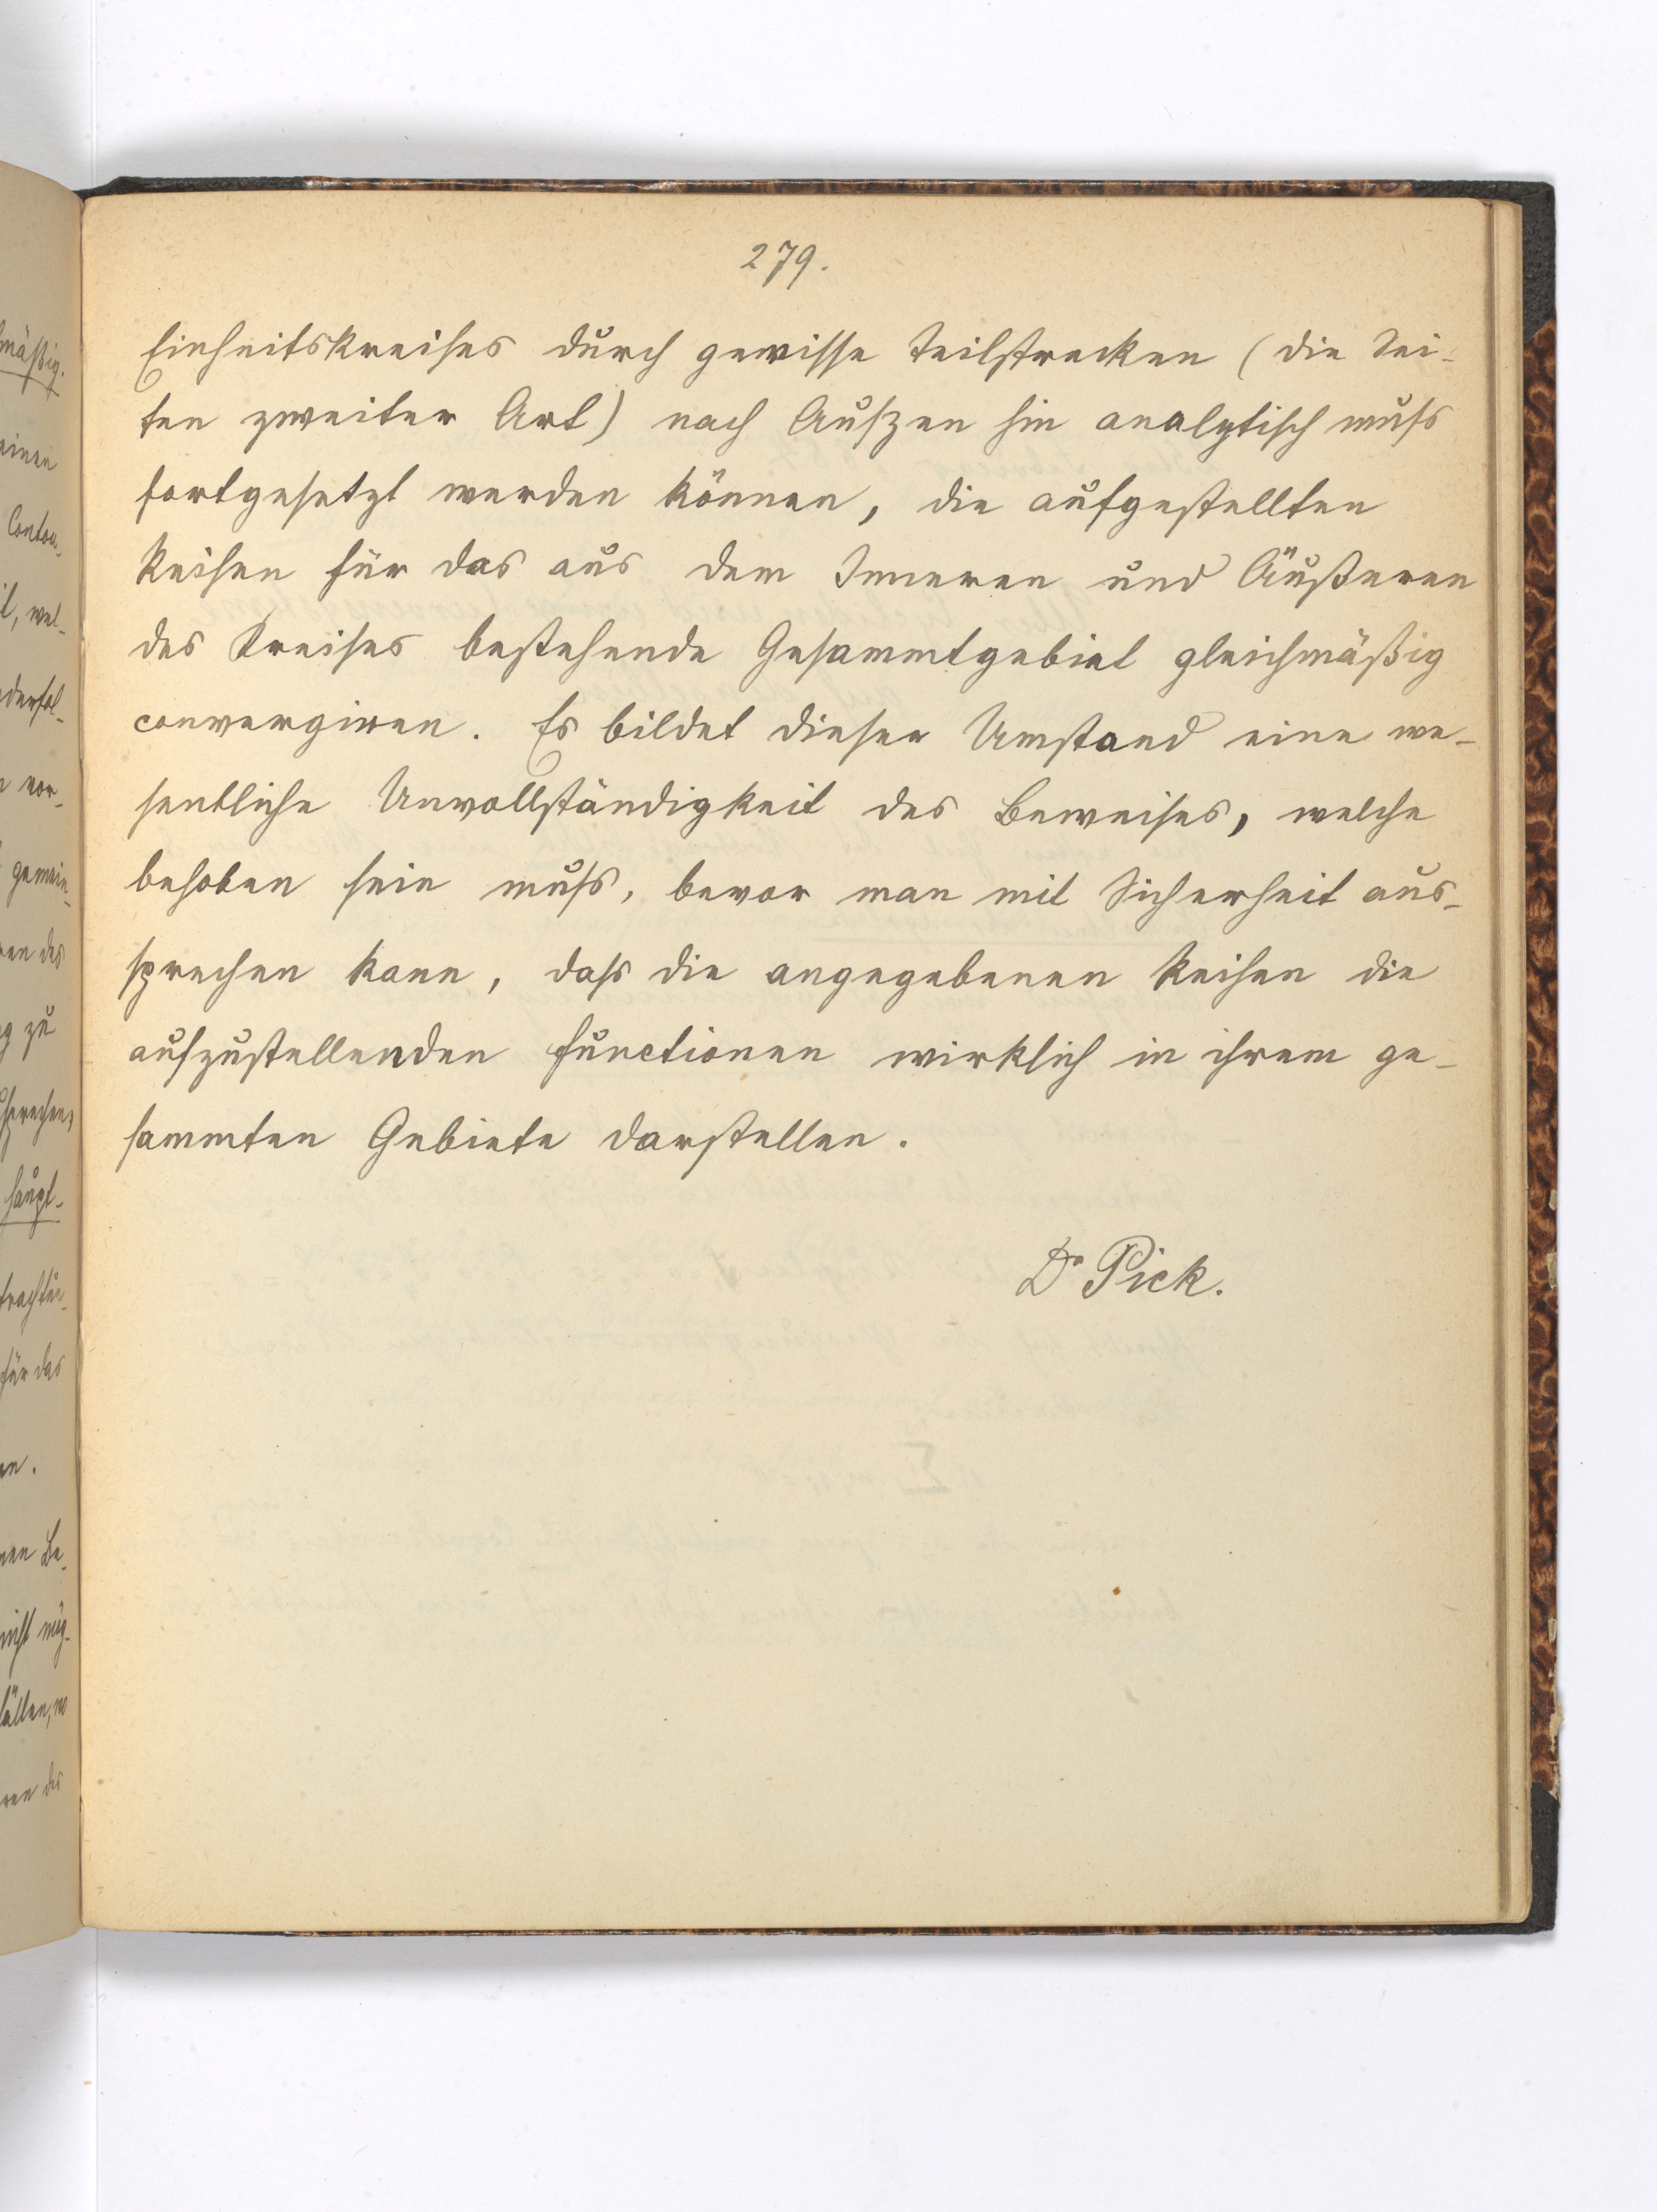 279.
Einheitskreises durch gewisse Teilstrecken (die Sei-
ten zweiter Art) nach Auszen hin analytisch muss
fortgesetzt werden können, die aufgestellten
Reihen für das aus dem Inneren und Äußeren
des Kreises bestehende Gesammtgebiet gleichmäßig
convergiren. Es bildet dieser Umstand eine we-
sentliche Unvollständigkeit des Beweises, welche
behoben sein muss, bevor man mit Sicherheit aus-
sprechen kann, dass die angegebenen Reihen die
aufzustellenden Functionen wirklich in ihrem ge-
sammten Gebiete darstellen.
Dr Pick.
mäßig.
einen
Contou-
wel-
vor-
gemein-
des
zu
Haupt-
für das
Be-
nicht mög-
des